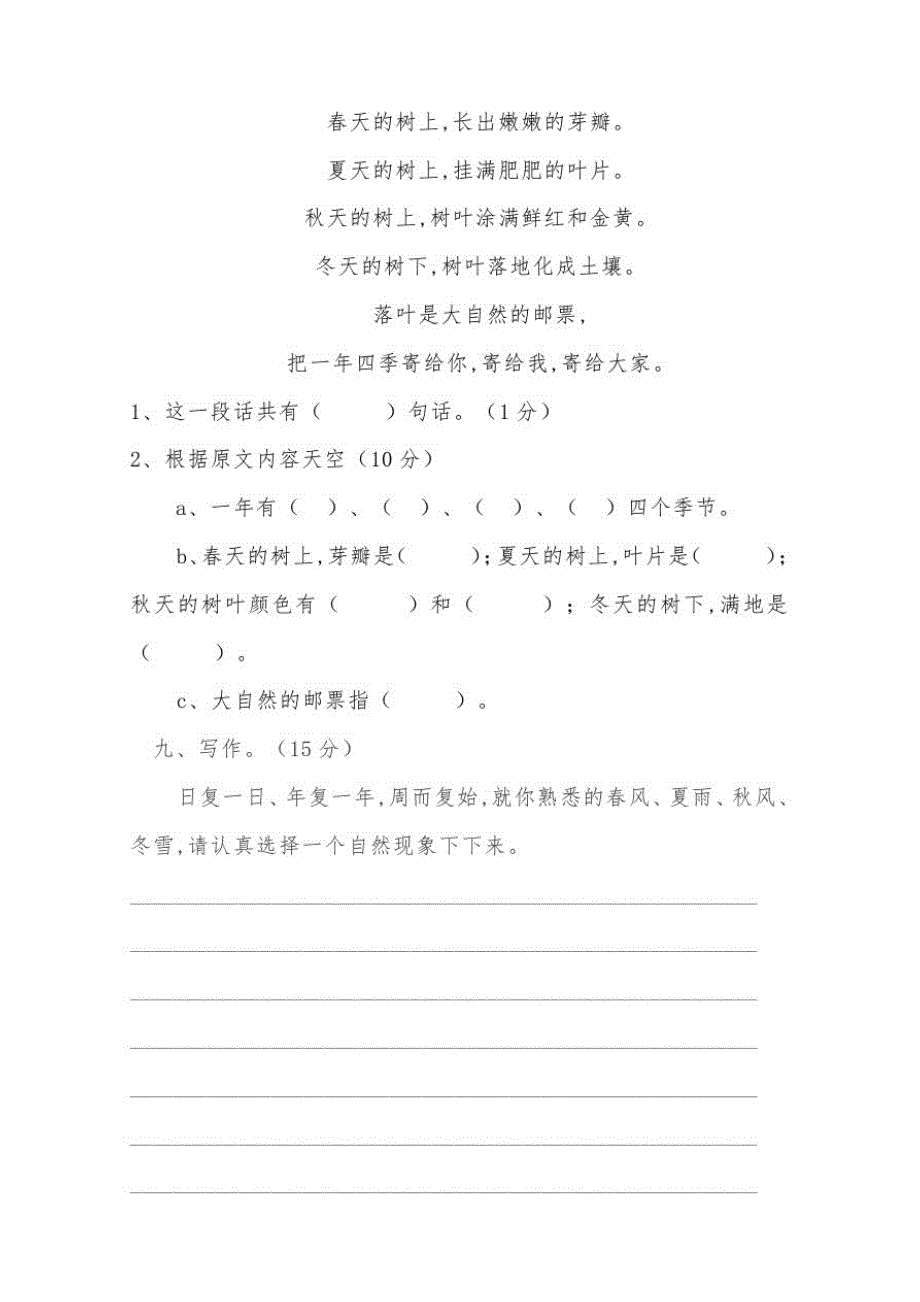 春天的树上,长出嫩嫩的芽瓣。
夏天的树上,挂满肥肥的叶片。
秋天的树上,树叶涂满鲜红和金黄。
冬天的树下,树叶落地化成土壤。
落叶是大自然的邮票,
把一年四季寄给你,寄给我,寄给大家。
1、这一段话共有（　　）句话。（1分）
2、根据原文内容天空（10分）
a、一年有（　）、（　）、（　）、（　）四个季节。
b、春天的树上,芽瓣是(　　)；夏天的树上,叶片是(　　)；
秋天的树叶颜色有（　　）和（　　）；冬天的树下,满地是
（　　）。
c、大自然的邮票指（　　）。
九、写作。（15分）
日复一日、年复一年,周而复始,就你熟悉的春风、夏雨、秋风、
冬雪,请认真选择一个自然现象下下来。